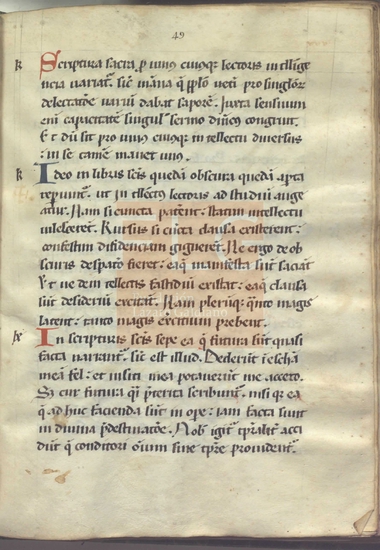 49
Scriptura sacra p̱ uniꝰ cuiusqꝫ lectoris intelligē
ncia uariat᷑. sic̄ māna q̄ pp̄lo uet̄i pro singlōꝝ
delectatōne uariū dabat saporē. Juxta sensuum
eni capacitatē singul᷑ sermo dn̄icꝰ congruit.
Et dū sit pro uniꝰ cuiusqꝫ intellectu diuersus
: in se tamē manet unꝰ.
Ideo in libris sc̄is quedā obscura quedā aꝑta
repiunt᷑. ut intellectꝰ lectoris ad studiū auge
atur. Nam si cuncta paterēt : statim intellectu
uilescerēt. Rursus si cūcta clausa existerent :
confestim diffidenciam gignerēt. Ne ergo de ob
scuris despatō fieret : eaqꝫ manifesta sūt saciāt
Et ne de intellectis fastidiū existat : eaqꝫ clausa
sūt desideriū excitāt. Nam pleriqꝫ q̄nto magis
latent : tanto magis exercitium prebent.
In scripturis sc̄is sepe ea q̄ futura sūt quasi
facta narrant᷑. sic̄ est illud. Dederūt ī escā
meā fel : et in siti mea potauerūt me aceto.
Sꝫ cur futura q̄si p̄terita scribunt᷑. nisi qꝛ ea
q̄ ad huc facienda sūt in oꝑe : iam facta sunt
in diuina p̄destinatōe. Nob̄ igit᷑ tp̄ralit᷑ acci
dūt q̄ conditori oīum sine tp̄re prouident᷑.